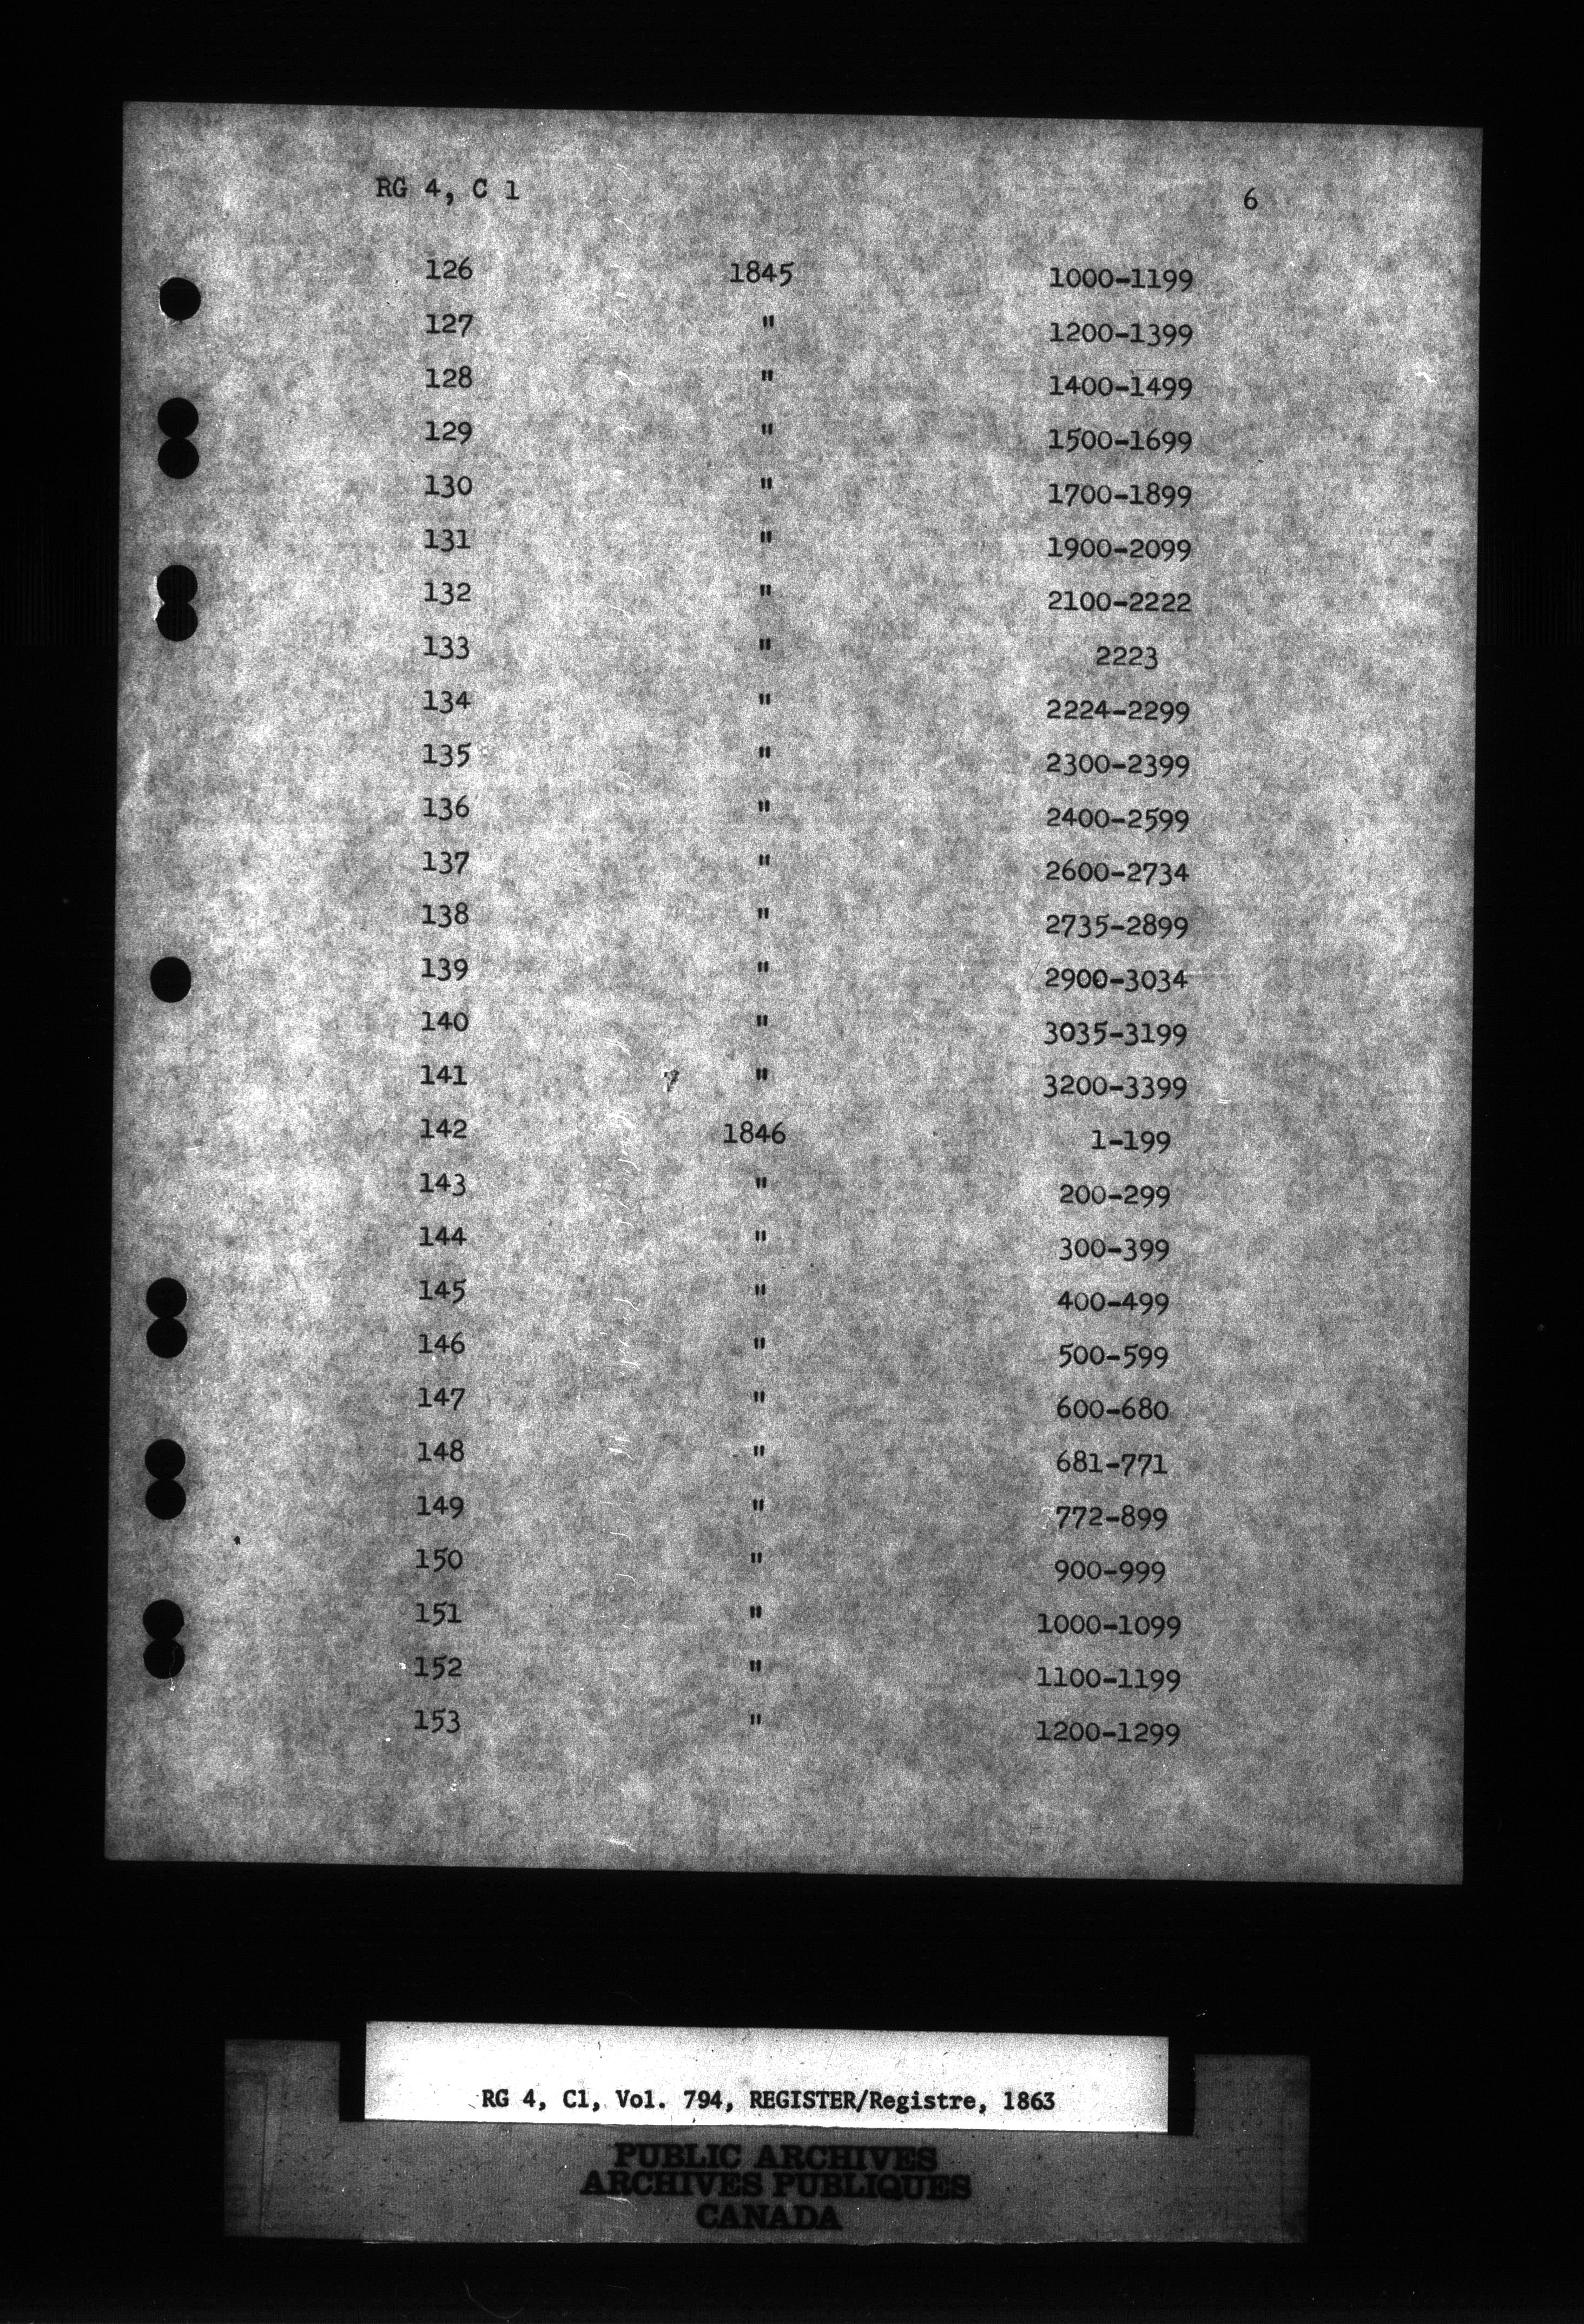 RG 4, C 1 6
126 1845 1000-1199
127 " 1200-1399
128 " 1400-1499
129 " 1500-1699
130 " 1700-1899
131 " 1900-2099
132 " 2100-2222
133 " 2223
134 " 2224-2299
135 " 2300-2399
136 " 2400-2599
137 " 2600-2734
138 " 2735-2899
139 " 2900-3034
140 " 3035-3199
141 " 3200-3399
142 1846 1-199
143 " 200-299
144 " 300-399
145 " 400-499
146 " 500-599
147 " 600-680
148 " 681-771
149 " 772-899
150 " 900-999
151 " 1000-1099
152 " 1100-1199
153 " 1200-1299
RG 4, C1, Vol. 794, REGISTER/Registre, 1863
PUBLIC ARCHIVES
ARCHIVES PUBLIQUES
CANADA